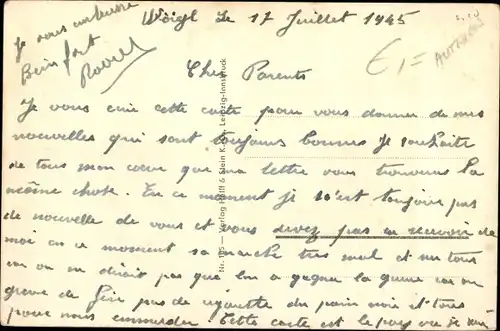 Wörgl Le 17 Juillet 1945
Je vous embrasse
Bien fort
€1=
Cher Parents
Je vous écrit cette carte pour vous donner de mes
nouvelles qui sont toujours bonnes Je souhaite
de tous mon cœur que ma lettre vous trouvera la
même chose. En ce moment Je n'est toujours pas
de nouvelle de vous et vous devez pas en recevoir de
moi en ce moment sa marche tres mal et surtous
on ne dirait pas que l'on a gagner la guerre car on
creve de faim pas de cigarette du pain noir et tous
pour nous emmerder. Cette carte est le pays ou Je suis
Nr. 185 — Verlag Stein Leipzig-Innsbruck